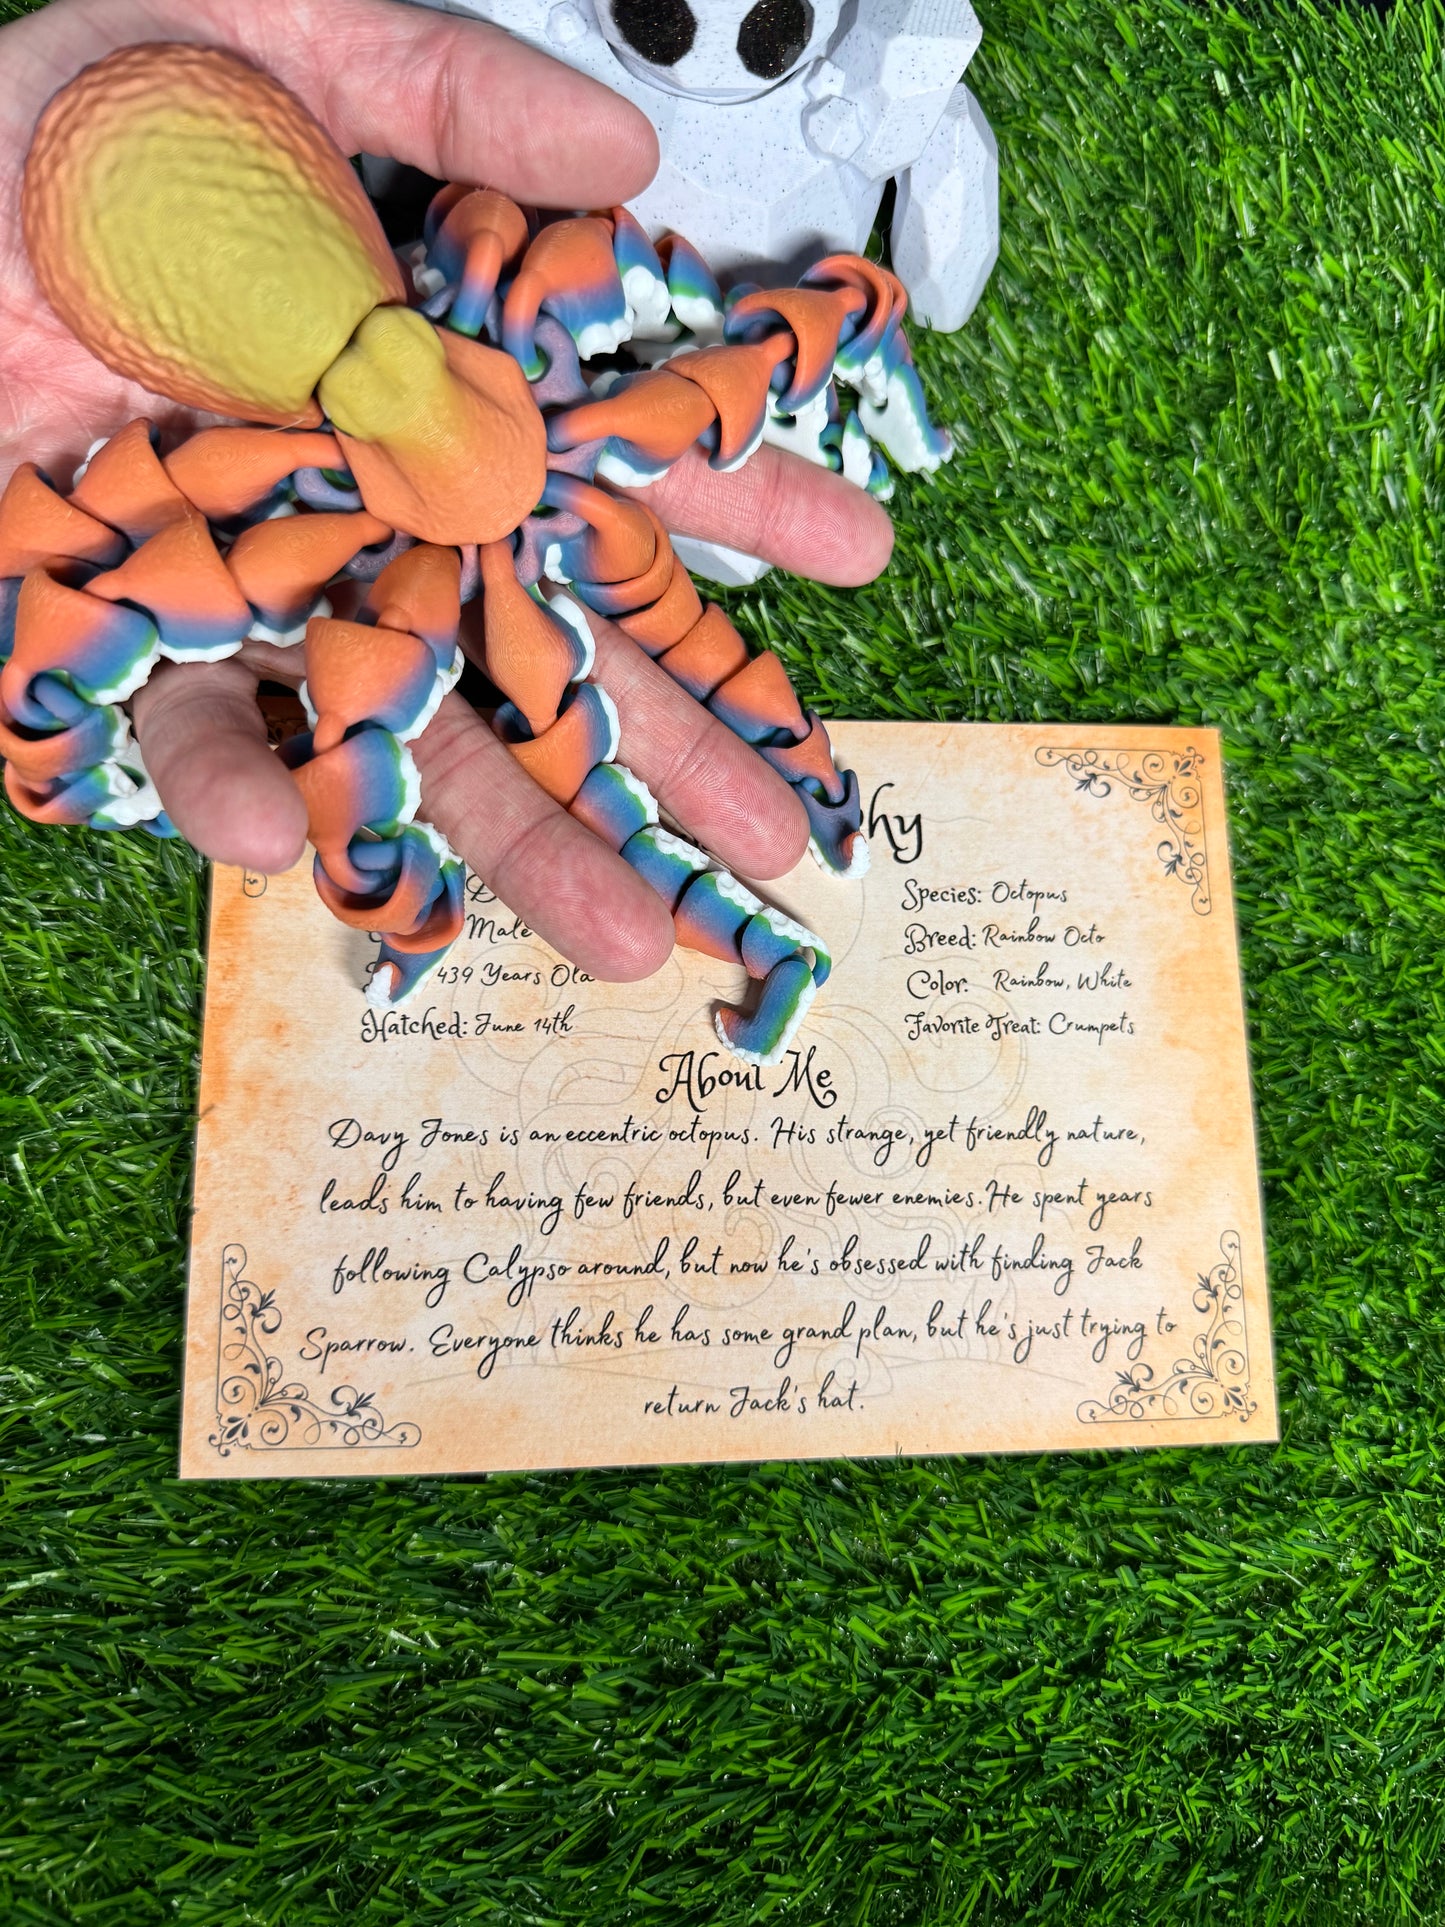 Species: Octopus
Male
Breed: Rainbow Octo
439 Years Old
Color: Rainbow, White
Hatched: June 14th
Favorite Treat: Crumpets
About Me
Davy Jones is an eccentric octopus. His strange, yet friendly nature,
leads him to having few friends, but even fewer enemies. He spent years
following Calypso around, but now he's obsessed with finding Jack
Sparrow. Everyone thinks he has some grand plan, but he's just trying to
return Jack's hat.